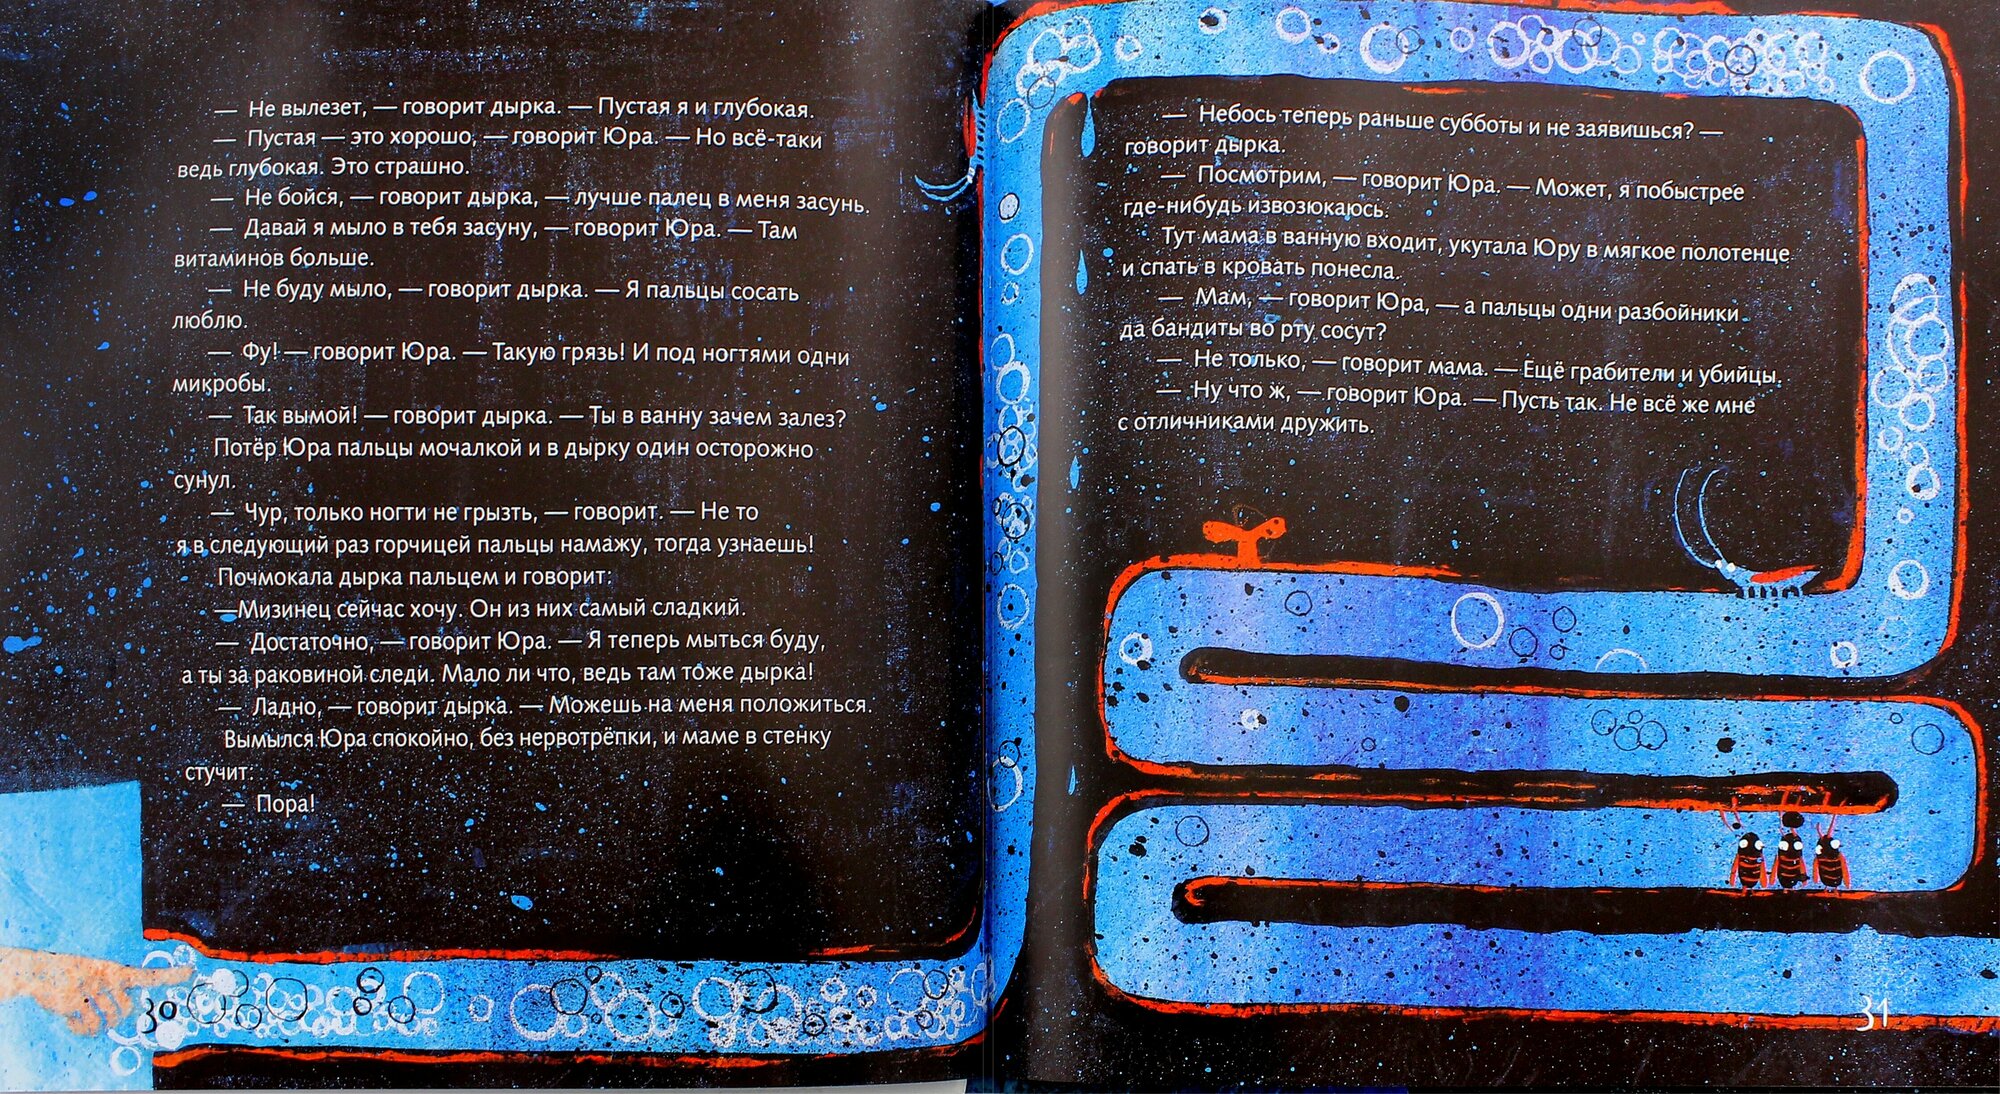 — Не вылезет, — говорит дырка. — Пустая я и глубокая.
— Пустая — это хорошо, — говорит Юра. — Но всё-таки
ведь глубокая. Это страшно.
— Не бойся, — говорит дырка, — лучше палец в меня засунь.
— Давай я мыло в тебя засуну, — говорит Юра. — Там
витаминов больше.
— Не буду мыло, — говорит дырка. — Я пальцы сосать
люблю.
— Фу! — говорит Юра. — Такую грязь! И под ногтями одни
микробы.
— Так вымой! — говорит дырка. — Ты в ванну зачем залез?
Потёр Юра пальцы мочалкой и в дырку один осторожно
сунул.
— Чур, только ногти не грызть, — говорит. — Не то
я в следующий раз горчицей пальцы намажу, тогда узнаешь!
Почмокала дырка пальцем и говорит:
—Мизинец сейчас хочу. Он из них самый сладкий.
— Достаточно, — говорит Юра. — Я теперь мыться буду,
а ты за раковиной следи. Мало ли что, ведь там тоже дырка!
— Ладно, — говорит дырка. — Можешь на меня положиться.
Вымылся Юра спокойно, без нервотрёпки, и маме в стенку
стучит:
— Пора!
30
— Небось теперь раньше субботы и не заявишься? —
говорит дырка.
— Посмотрим, — говорит Юра. — Может, я побыстрее
где-нибудь извозюкаюсь.
Тут мама в ванную входит, укутала Юру в мягкое полотенце
и спать в кровать понесла.
— Мам, — говорит Юра, — а пальцы одни разбойники
да бандиты во рту сосут?
— Не только, — говорит мама. — Ещё грабители и убийцы.
— Ну что ж, — говорит Юра. — Пусть так. Не всё же мне
с отличниками дружить.
31